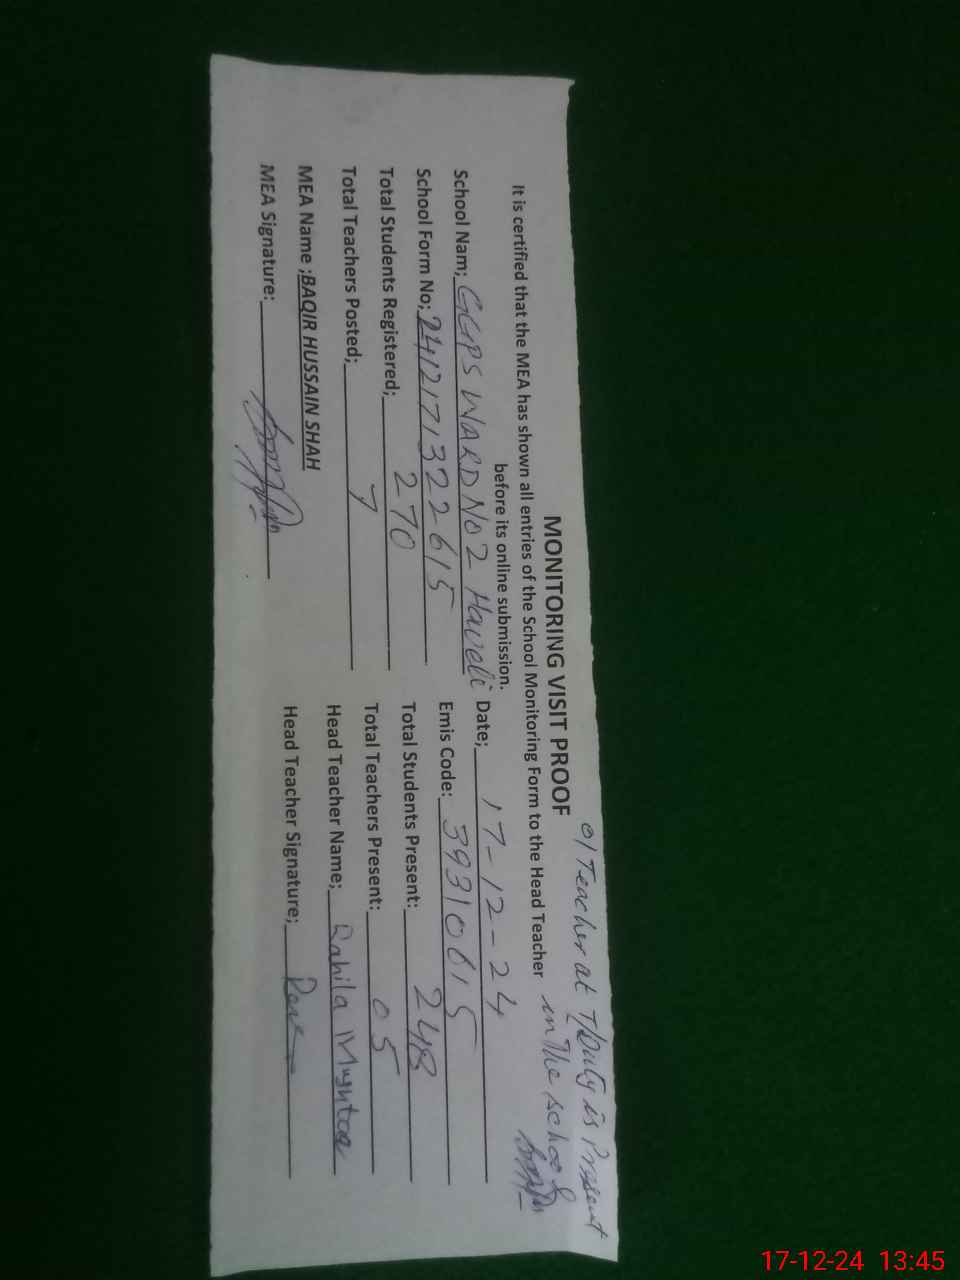 01 Teacher at T/Duty is Present
in The school
MONITORING VISIT PROOF
It is certified that the MEA has shown all entries of the School Monitoring Form to the Head Teacher
before its online submission.
School Nam; GGPS WARD NO 2 Haveli Date; 17-12-24
School Form No; 2412171322615 Emis Code: 39310615
Total Students Registered; 270 Total Students Present: 248
Total Teachers Posted; 7 Total Teachers Present: 05
MEA Name ;BAQIR HUSSAIN SHAH Head Teacher Name; Rahila Mumtaz
MEA Signature: Head Teacher Signature;
17-12-24 13:45